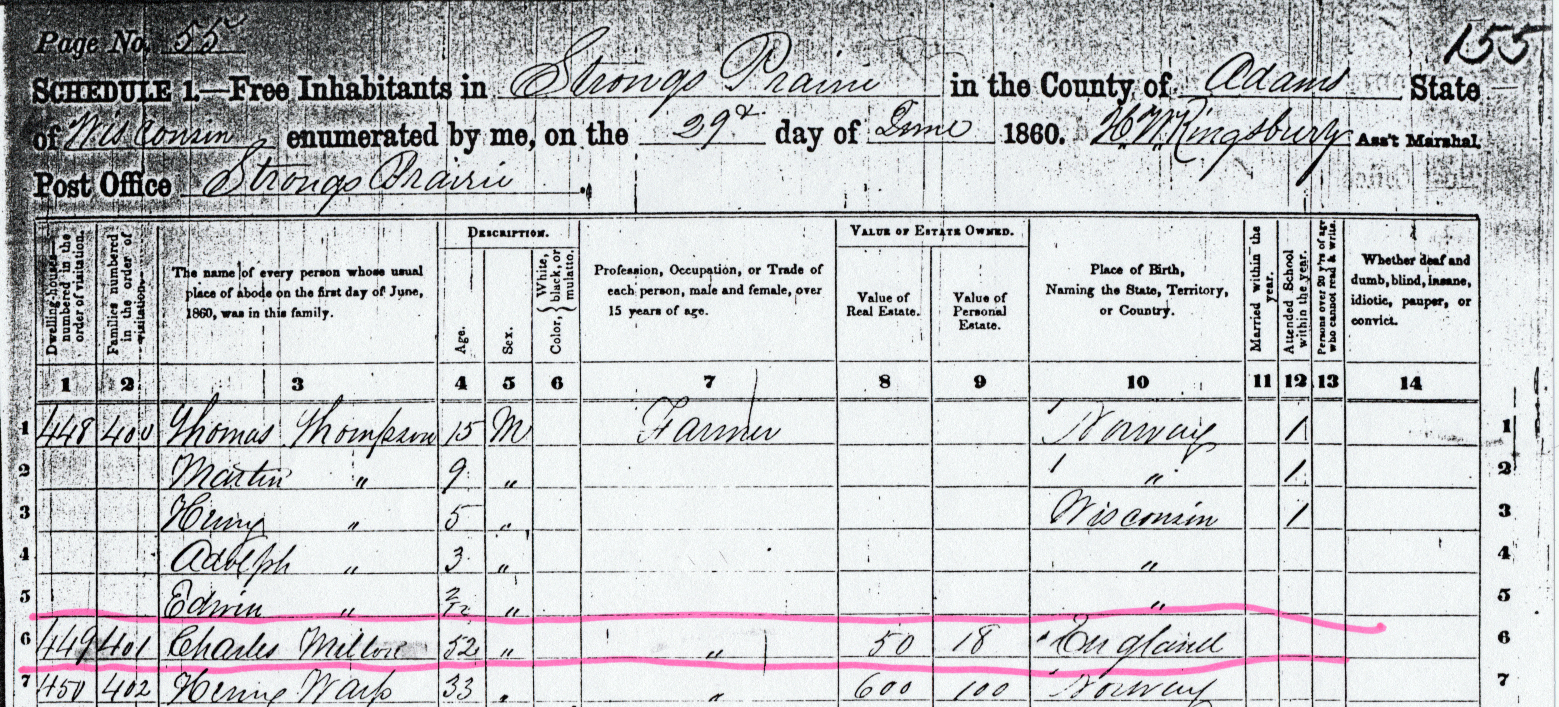 Page No. 55
155
SCHEDULE 1.—Free Inhabitants in Strongs Prairie in the County of Adams State
of Wisconsin enumerated by me, on the 29th day of June 1860. H. W. Kingsbury Ass't Marshal.
Post Office Strongs Prairie.
Dwelling-houses—numbered in the order of visitation.
Families numbered in the order of visitation.
The name of every person whose usual
place of abode on the first day of June,
1860, was in this family.
DESCRIPTION.
Age.
Sex.
Color, { White, black, or mulatto.
Profession, Occupation, or Trade of
each person, male and female, over
15 years of age.
VALUE OF ESTATE OWNED.
Value of
Real Estate.
Value of
Personal
Estate.
Place of Birth,
Naming the State, Territory,
or Country.
Married within the year.
Attended School within the year.
Persons over 20 y'rs of age who cannot read & write.
Whether deaf and
dumb, blind, insane,
idiotic, pauper, or
convict.
1 2 3 4 5 6 7 8 9 10 11 12 13 14
1 448 400 Thomas Thompson 15 M Farmer Norway 1 1
2 Martin " 9 " " 1 2
3 Henry " 5 " Wisconsin 1 3
4 Adolph " 3 " " 4
5 Edwin " 2/12 " " 5
6 449 401 Charles 52 " " 50 18 England 6
7 450 402 Henry Warp 33 " " 600 100 Norway 7